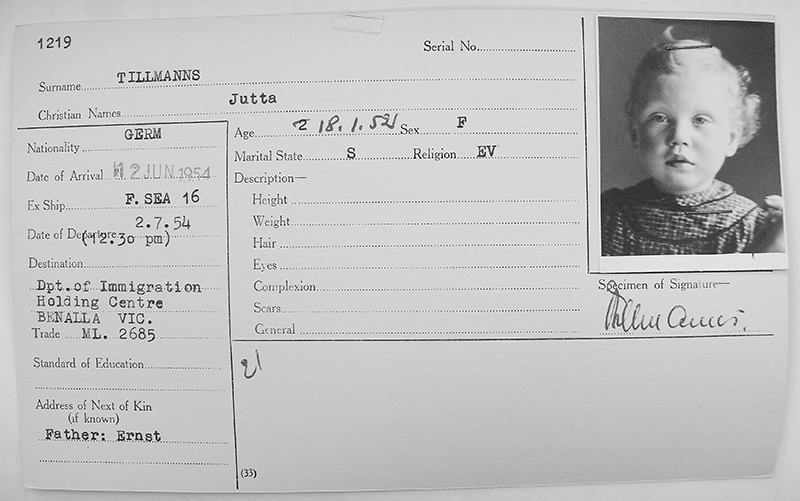 1219
Serial No.
Surname TILLMANNS
Christian Names Jutta
Nationality GERM
Date of Arrival 12 JUN 1954
Ex Ship F. SEA 16
Date of Departure 2.7.54
(12.30 pm)
Destination
Dpt.of Immigration
Holding Centre
BENALLA VIC.
Trade ML. 2685
Standard of Education
Address of Next of Kin
(if known)
Father: Ernst
Age 2 18.1.52 Sex F
Marital State S Religion EV
Description—
Height
Weight
Hair
Eyes
Complexion
Scars
General
Specimen of Signature—
Tillmanns.
(33)